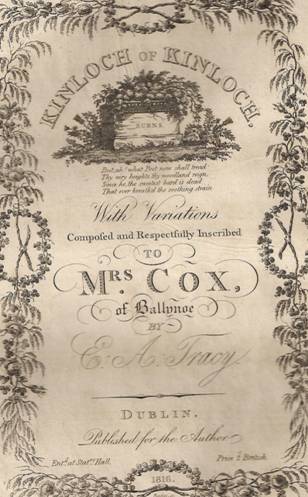 KINLOCH OF KINLOCH,
BURNS
But ah! what Poet now shall tread
Thy airy heights thy woodland reign,
Since he the sweetest bard is dead
That ever breath'd the soothing strain
With Variations
Composed and Respectfully Inscribed
TO
MRS. COX,
of Ballynoe
BY
E. A. Tracy
DUBLIN.
Published for the Author
Ent.d at Stat.rs Hall. Price 2 British
1816.